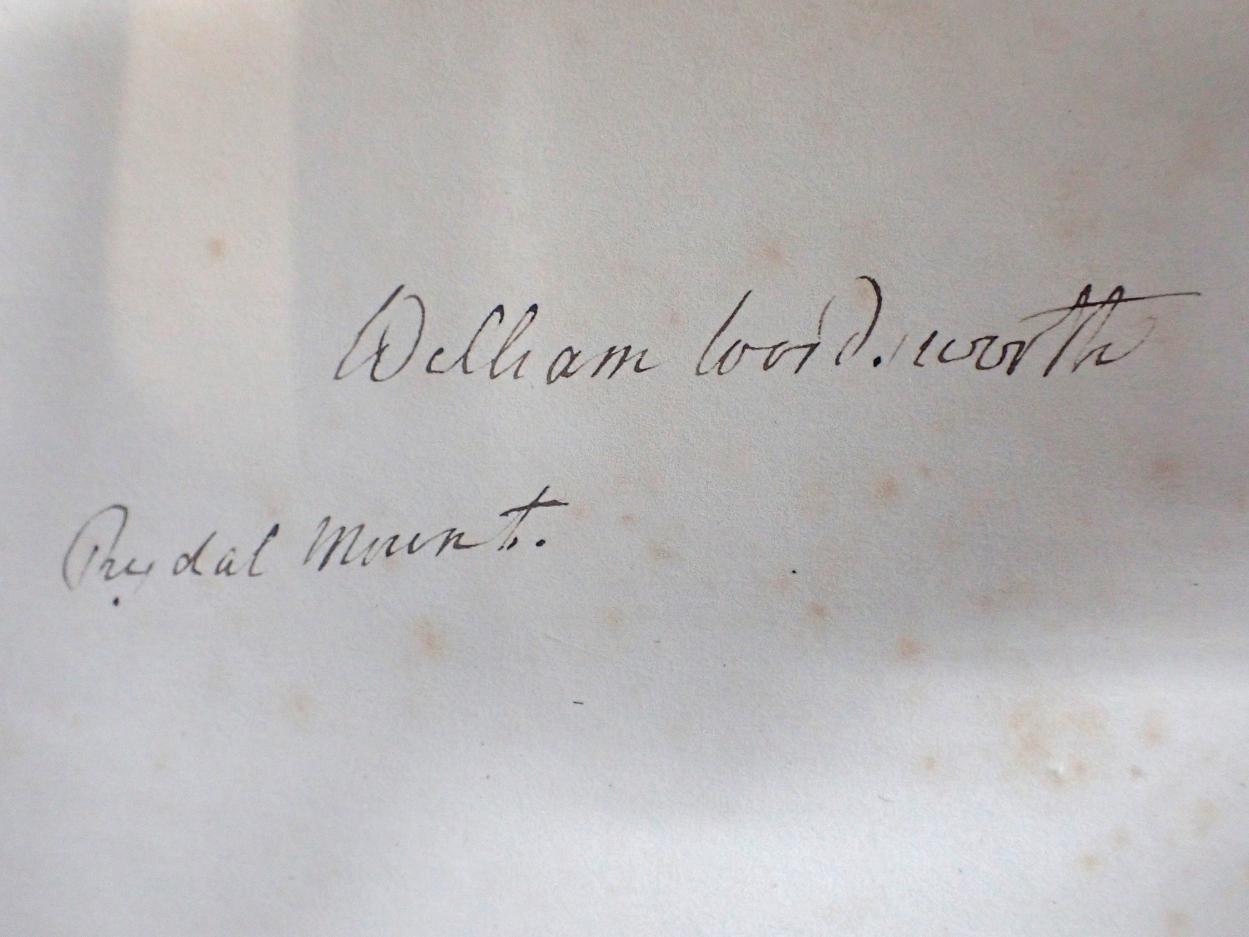 William Wordsworth
Rydal Mount.